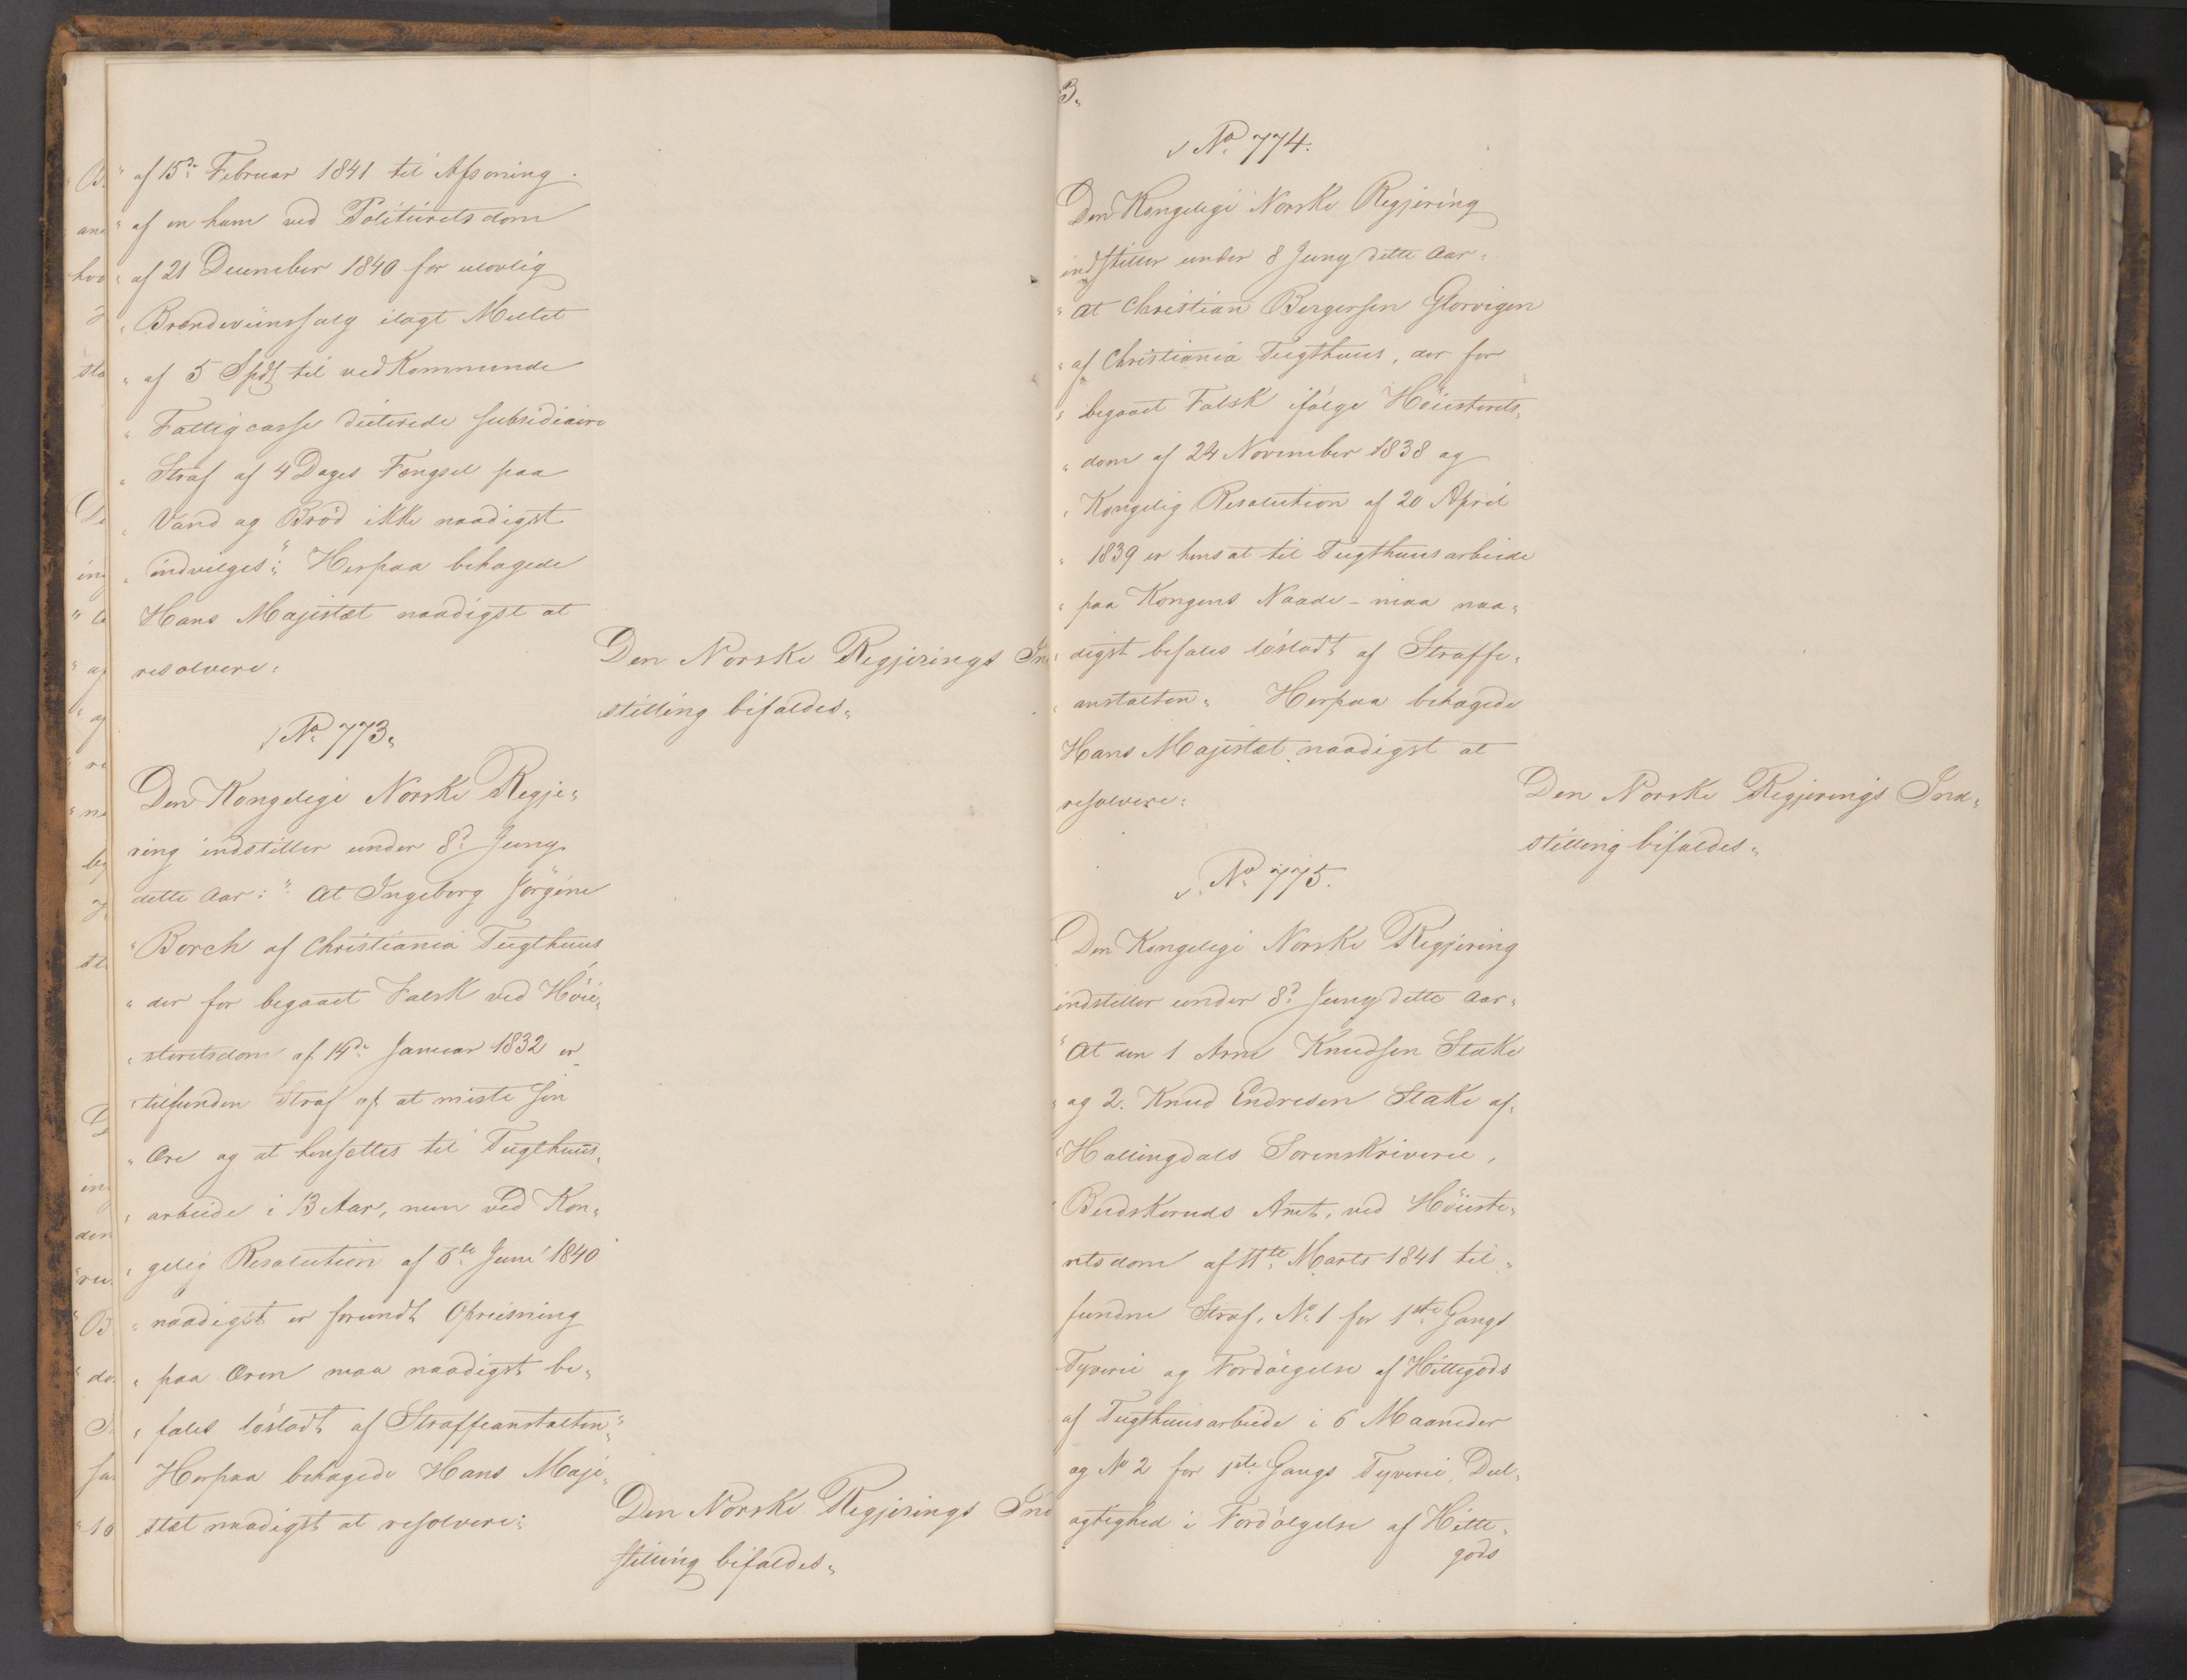 " af 15de Februar 1841 til Afsoning
" af en ham ved Politieretsdom
" af 21 December 1840 for ulovlig
" Brændeviinssalg ilagt Mulct
" af 5 Spd til vedkommende
" Fattigcasse dicterede subsidiaire
" Straf af 4 Dages Fængsel paa
" Vand og Brød ikke naadigst
" indvilges:" Herpaa behagede
Hans Majestæt naadigst at
resolvere:
Den Norske Regjerings Ind
stilling bifaldes.
No 773.
Den Kongelige Norske Regje-
ring indstiller under 8d Juny
dette Aar: " At Ingeborg Jörgine
" Borch af Christiania Tugthuus
" der for begaaet Falsk ved Höie-
" steretsdom af 14de Januar 1832 er
" tilfunden Straf af at miste sin
" Ære og at hensættes til Tugthuus-
" arbeide i 13 Aar, men ved Kon-
" gelig Resolution af 6te Juni 1840
" naadigst er forundt Opreisning
" paa Æren maa naadigst be-
" fales lösladt af Straffeanstalten"
Herpaa behagede Hans Maje-
stæt naadigst at resolvere:
Den Norske Regjerings Ind
stilling bifaldes.
3.
No 774.
Den Kongelige Norske Regjering
indstiller under 8 Juny dette Aar:
" At Christian Bergersen Glorvigen
" af Christiania Tugthuus, der for
" begaaet Falsk ifölge Höiesterets-
" dom af 24 November 1838 og
" Kongelig Resolution af 20 April
" 1839 er hensat til Tugthuusarbeide
" paa Kongens Naade - maa naa-
" digst befales lösladt af Straffe-
" anstalten" Herpaa behagede
Hans Majestæt naadigst at
resolvere:
Den Norske Regjerings Ind-
stilling bifaldes.
No 775.
Den Kongelige Norske Regjering
indstiller under 8d Juny dette Aar:
" At den 1 Arne Knudsen Stake
" og 2. Knud Endresen Stake af
" Hallingdals Sorenskriverie,
" Budskeruds Amt, ved Höieste-
retsdom af 11te Marts 1841 til-
fundne Straf, No 1 for 1ste Gangs
Tyverie og Fordölgelse af Hittegods
af Tugthuusarbeide i 6 Maaneder
og No 2 for 1ste Gangs Tyverie, Deel-
agtighed i Fordölgelse af Hitte-
gods